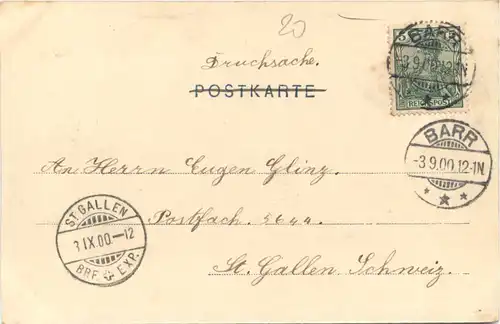 20
Drucksache.
POSTKARTE
5
REICHSPOST
BARR
-3.9.00.12-1N
BARR
-3.9.00.12-1N
An Herrn Eugen Glinz.
Postfach 2644
St. Gallen Schweiz.
ST. GALLEN
3 IX.00.–12
BRF. EXP.